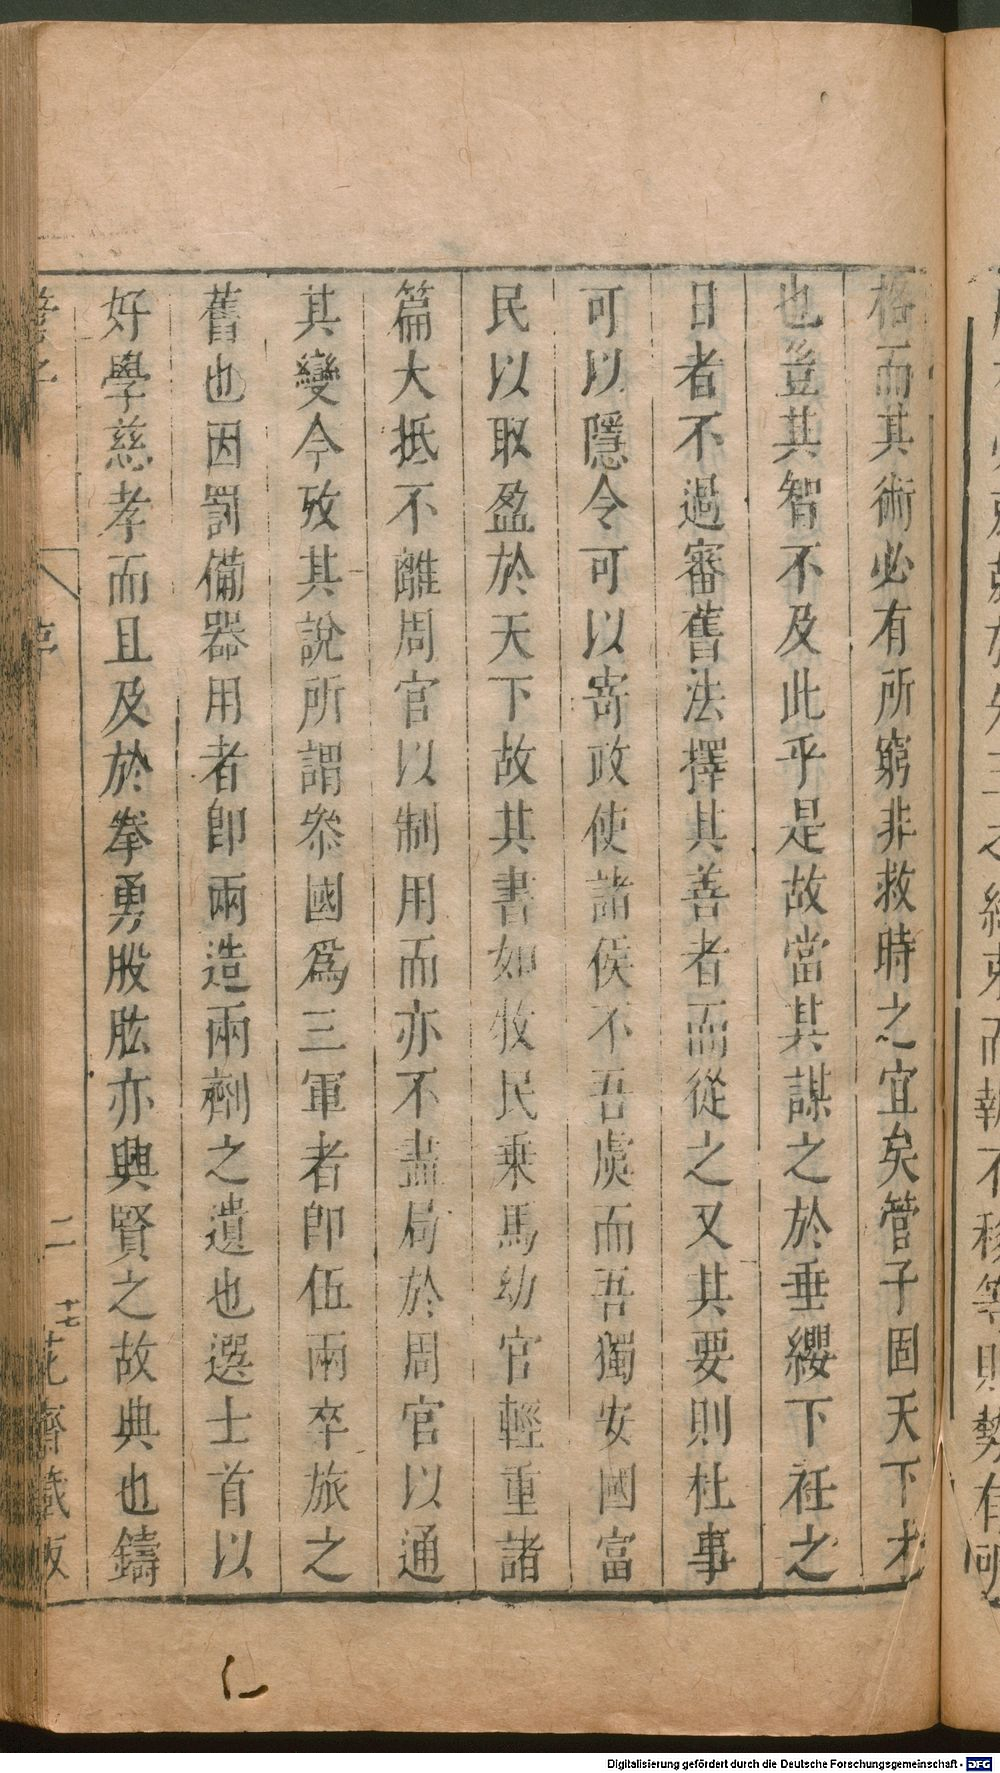 格而其術必有所窮非救時之宜矣管子固天下才
也豈其智不及此乎是故當其謀之於垂纓下衽之
日者不過審舊法擇其善者而從之又其要則杜事
可以隱令可以寄政使諸侯不吾虞而吾獨安國富
民以取盈於天下故其書如牧民乗馬幼官輕重諸
篇大抵不離周官以制用而亦不盡局於周官以通
其變今攷其說所謂叅國爲三軍者卽伍兩卒旅之
舊也因罰備器用者卽兩造兩劑之遺也選士首以
好學慈孝而且及於拳勇股肱亦興賢之故典也鑄
管子
序
二
十七
花齋藏版
Digitalisierung gefördert durch die Deutsche Forschungsgemeinschaft - DFG